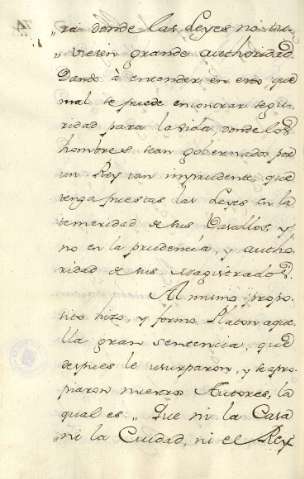 „ra donde las Leyes no tu-
„viesen grande authoridad.
Dando à entender, en esto que
mal se puede encontrar segu-
ridad para la vida, donde los
hombres sean gobernados por
un Rey tan imprudente, que
tenga puestas las Leyes en la
temeridad de sus Vasallos, y
no en la prudencia, y autho-
ridad de sus Magistrados.
Al mismo propo-
sito hizo, y formo Platon aque-
lla gran sentencia, que
despues le usurparon, y se apro-
piaron nuevos Autores, la
qual es: „Que ni la Casa
ni la Ciudad, ni el Rey